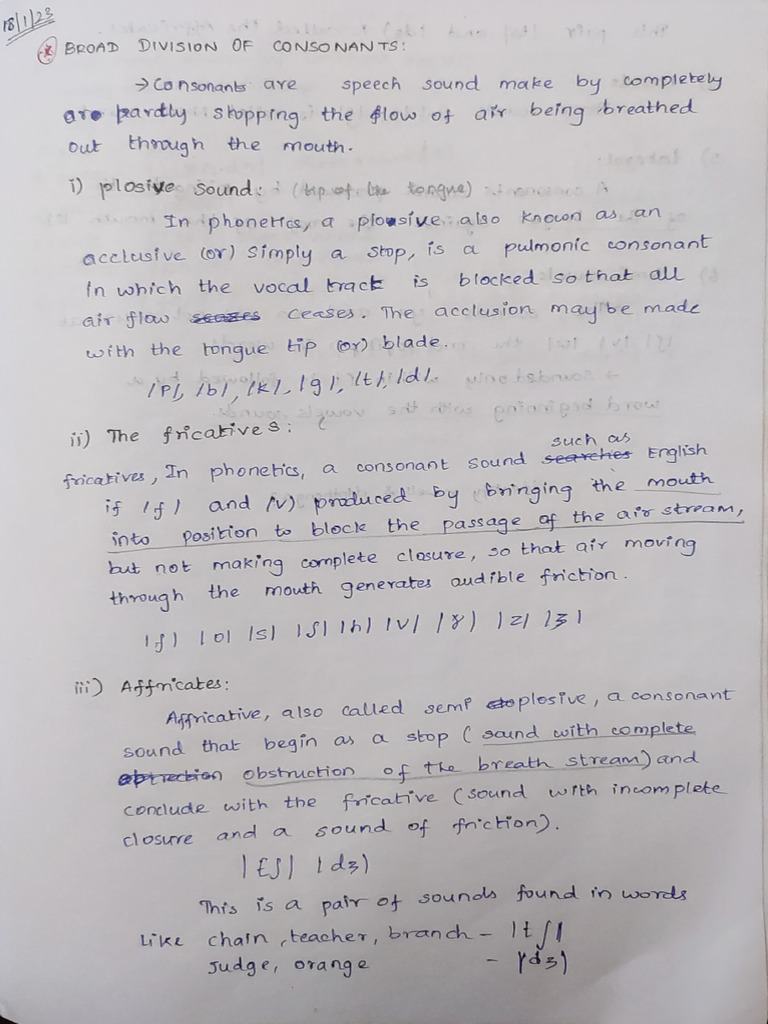 18/1/23
BROAD DIVISION OF CONSONANTS:
→ Consonants are speech sound make by completely
are pardly stopping the flow of air being breathed
out through the mouth.
i) plosive sound: (tip of the tongue)
In phonetics, a plousive also known as an
acclusive (or) Simply a stop, is a pulmonic consonant
in which the vocal track is blocked so that all
air flow ceases. The acclusion may be made
with the tongue tip (or) blade.
/P/, /b/, /k/, /g/, /t/, /d/.
ii) The fricatives:
such as
fricatives, In phonetics, a consonant sound searches English
if /f/ and /v) produced by bringing the mouth
into position to block the passage of the air stream,
but not making complete closure, so that air moving
through the mouth generates audible friction.
/f/ /θ/ /s/ /ʃ/ /h/ /v/ /ɣ/ /z/ /ʒ/
iii) Affricates:
Affricative, also called semi plosive, a consonant
sound that begin as a stop (sound with complete
obstruction of the breath stream) and
conclude with the fricative (sound with incomplete
closure and a sound of friction).
/tʃ/ /dʒ/
This is a pair of sounds found in words
Like chain, teacher, branch - /tʃ/
Judge, orange - /dʒ/